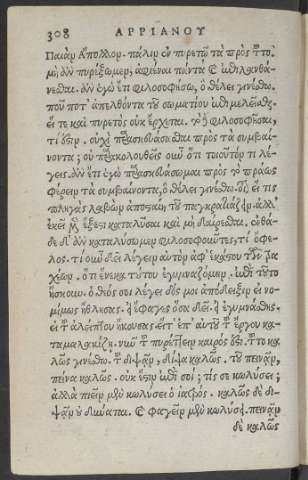 308 ΑΡΡΙΑΝΟΥ
Παιὰν Ἄπολλον. πάλιν ἐν πυρετῷ τὰ πρὸς τοῦτο
μόνον ἂν πυρέξωμεν, ἀφεῖναι πάντα καὶ ἐκλανθά-
νεσθαι. ἂν ἐγὼ ἔτι φιλοσοφήσω, ὃ θέλει γινέσθω.
ποῦ ποτ' ἀπελθόντα τοῦ σωματίου ἐπιμελεῖσθαι
εἴ γε καὶ πυρετὸς οὐκ ἔρχεται. τὸ δὲ φιλοσοφῆσαι,
τί ἐστιν. οὐχὶ παρασκευάσασθαι πρὸς τὰ συμβαί-
νοντα; οὐ παρακολουθεῖς οὖν ὅτι τοιοῦτόν τι λέ-
γεις. ἂν ἔτι ἐγὼ παρασκευάσωμαι πρὸς τὸ πράως
φέρειν τὰ συμβαίνοντα, ὃ θέλει γινέσθω. οἷον εἴ τις
πληγὰς λαβὼν ἀποσταίη τοῦ παγκρατιάζειν. ἀλλ'
ἐκεῖ μὲν ἔξεστι καταλῦσαι καὶ μὴ δαίρεσθαι. ἐνθά-
δε δ' ἂν καταλύσωμεν φιλοσοφοῦντες, τί ὄφε-
λος. τί οὖν δεῖ λέγειν αὐτὸν ἐφ' ἑκάστου τῶν τρα
χέων. ὅτι ἕνεκα τούτου ἐγυμναζόμην. ἐπὶ τοῦτο
ἤσκουν. ὁ θεός σοι λέγει δός μοι ἀπόδειξιν εἰ νο-
μίμως ἤθλησας. εἰ ἔφαγες ὅσα δεῖ. εἰ ἐγυμνάσθης.
εἰ τοῦ ἀλείπτου ἤκουσας. εἶτ' ἐπ' αὐτοῦ τοῦ ἔργου κα-
ταμαλακίζῃ. νῦν τοῦ πυρέττειν καιρός ἐστι. τοῦτο κα
λῶς γινέσθω. τοῦ διψᾷν, δίψα καλῶς. τοῦ πεινᾷν,
πείνα καλῶς. οὐκ ἔστιν ἐπὶ σοί; τίς σε κωλύσει;
ἀλλὰ πιεῖν μὲν κωλύσει ὁ ἰατρός. καλῶς δὲ δι-
ψᾷν οὐ δύναται. καὶ φαγεῖν μὲν κωλύσει. πεινᾷν
δὲ καλῶς